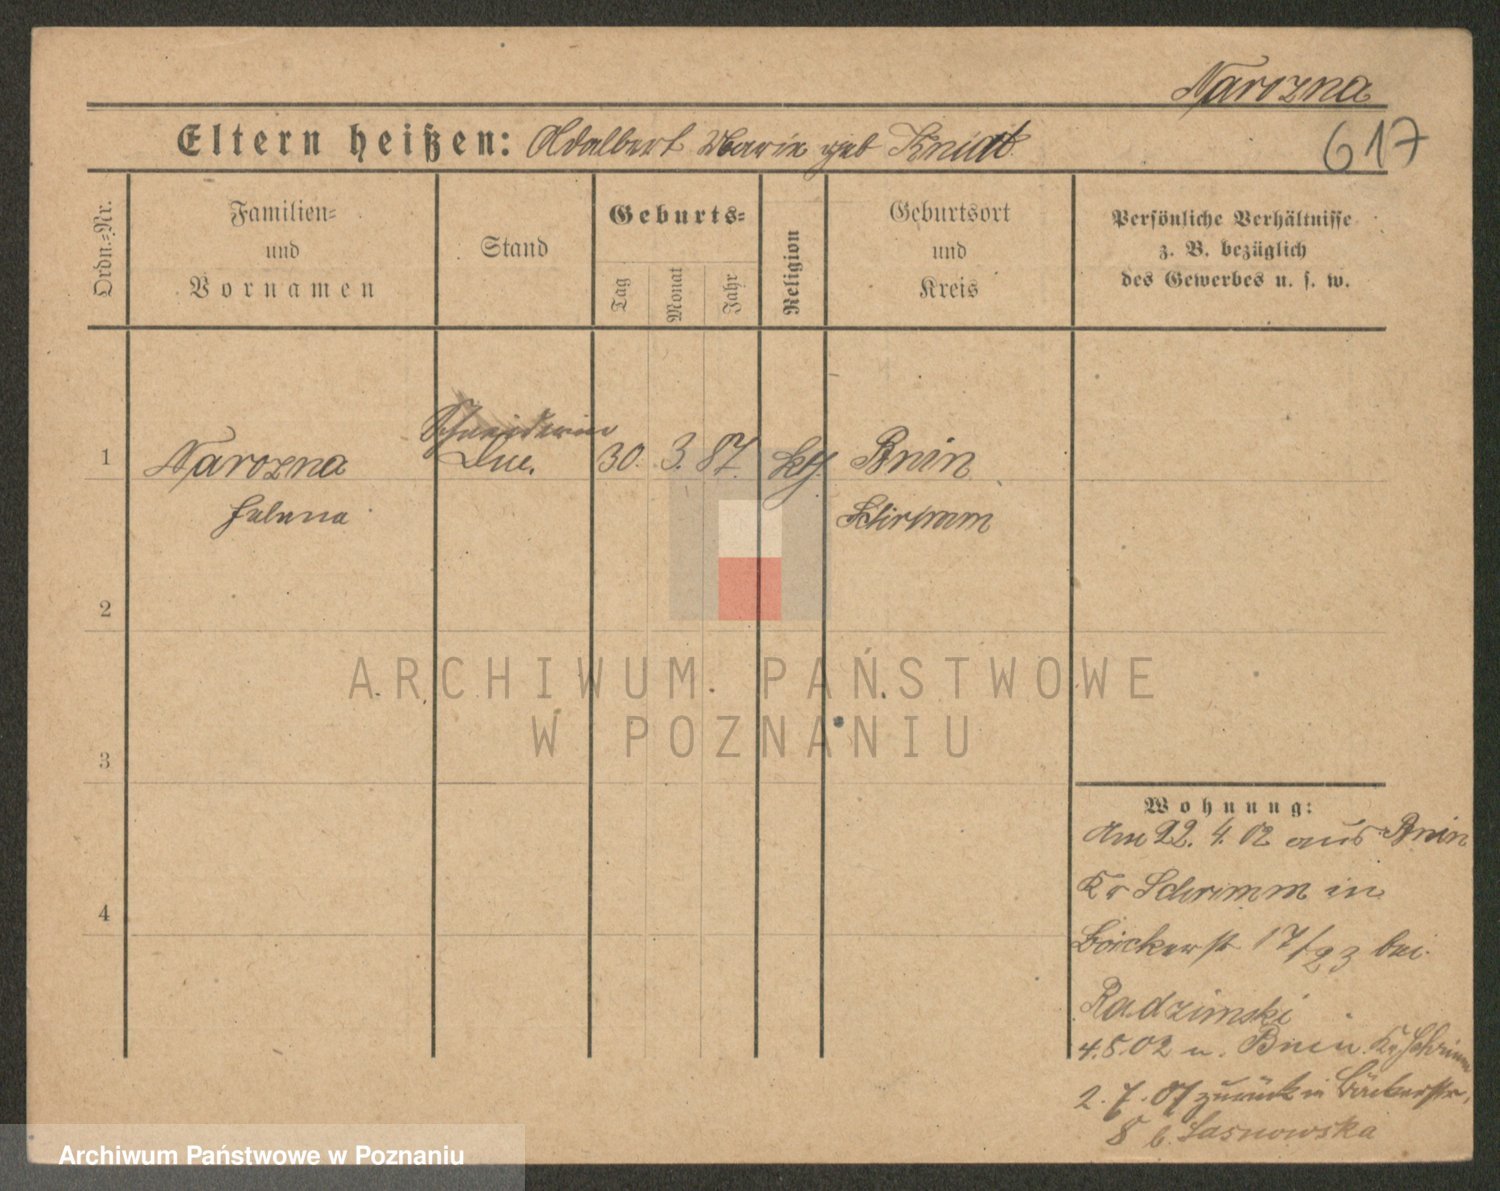 Narozna
617
Eltern heißen: Adalbert Marie geb
Ordn.-Nr.
Familien-
und
Vornamen
Stand
Geburts-
Tag
Monat
Jahr
Religion
Geburtsort
und
Kreis
Persönliche Verhältnisse
z. B. bezüglich
des Gewerbes u. s. w.
Schneiderin
1 Narozna 30. 3. 87. kth. Bnin
Helena Schrimm
2
3
4
Wohnung:
Am 22. 4. 02 aus Bnin
Kr Schrimm in
Bäckerstr 17/23 bei
Radzimski
4.5.02 n. Bnin Kr Schrimm
2.7.07 zurück in Bäckerstr,
8 b. Lasnowska
ARCHIWUM PAŃSTWOWE
W POZNANIU
Archiwum Państwowe w Poznaniu